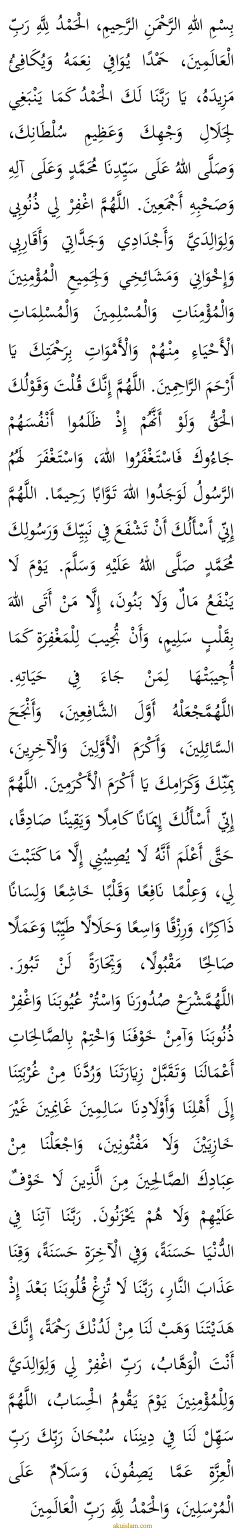 بِسْمِ اللهِ الرَّحْمَنِ الرَّحِيمِ، الْحَمْدُ لِلَّهِ رَبِّ
الْعَالَمِينَ، حَمْدًا يُوَافِي نِعَمَهُ وَيُكَافِئُ
مَزِيدَهُ، يَا رَبَّنَا لَكَ الْحَمْدُ كَمَا يَنْبَغِي
لِجَلَالِ وَجْهِكَ وَعَظِيمِ سُلْطَانِكَ،
وَصَلَّى اللهُ عَلَى سَيِّدِنَا مُحَمَّدٍ وَعَلَى آلِهِ
وَصَحْبِهِ أَجْمَعِينَ. اللَّهُمَّ اغْفِرْ لِي ذُنُوبِي
وَلِوَالِدَيَّ وَأَجْدَادِي وَجَدَّاتِي وَأَقَارِبِي
وَإِخْوَانِي وَمَشَائِخِي وَلِجَمِيعِ الْمُؤْمِنِينَ
وَالْمُؤْمِنَاتِ وَالْمُسْلِمِينَ وَالْمُسْلِمَاتِ
الْأَحْيَاءِ مِنْهُمْ وَالْأَمْوَاتِ بِرَحْمَتِكَ يَا
أَرْحَمَ الرَّاحِمِينَ. اللَّهُمَّ إِنَّكَ قُلْتَ وَقَوْلُكَ
الْحَقُّ وَلَوْ أَنَّهُمْ إِذْ ظَلَمُوا أَنْفُسَهُمْ
جَاءُوكَ فَاسْتَغْفَرُوا اللهَ، وَاسْتَغْفَرَ لَهُمُ
الرَّسُولُ لَوَجَدُوا اللهَ تَوَّابًا رَحِيمًا. اللَّهُمَّ
إِنِّي أَسْأَلُكَ أَنْ تَشْفَعَ فِي نَبِيِّكَ وَرَسُولِكَ
مُحَمَّدٍ صَلَّى اللهُ عَلَيْهِ وَسَلَّمَ. يَوْمَ لَا
يَنْفَعُ مَالٌ وَلَا بَنُونَ، إِلَّا مَنْ أَتَى اللهَ
بِقَلْبٍ سَلِيمٍ، وَأَنْ تُجِيبَ لِلْمَغْفِرَةِ كَمَا
أُجِيبَتْهَا لِمَنْ جَاءَ فِي حَيَاتِهِ.
اللَّهُمَّجْعَلْهُ أَوَّلَ الشَّافِعِينَ، وَأَنْجَحَ
السَّائِلِينَ، وَأَكْرَمَ الْأَوَّلِينَ وَالْآخِرِينَ،
بِمَنِّكَ وَكَرَامِكَ يَا أَكْرَمَ الْأَكْرَمِينَ. اللَّهُمَّ
إِنِّي أَسْأَلُكَ إِيمَانًا كَامِلًا وَيَقِينًا صَادِقًا،
حَتَّى أَعْلَمَ أَنَّهُ لَا يُصِيبُنِي إِلَّا مَا كَتَبْتَ
لِي، وَعِلْمًا نَافِعًا وَقَلْبًا خَاشِعًا وَلِسَانًا
ذَاكِرًا، وَرِزْقًا وَاسِعًا وَحَلَالًا طَيِّبًا وَعَمَلًا
صَالِحًا مَقْبُولًا، وَتِجَارَةً لَنْ تَبُورَ.
اللَّهُمَّشْرَحْ صُدُورَنَا وَاسْتُرْ عُيُوبَنَا وَاغْفِرْ
ذُنُوبَنَا وَآمِنْ خَوْفَنَا وَاخْتِمْ بِالصَّالِحَاتِ
أَعْمَالَنَا وَتَقَبَّلْ زِيَارَتَنَا وَرُدَّنَا مِنْ غُرْبَتِنَا
إِلَى أَهْلِنَا وَأَوْلَادِنَا سَالِمِينَ غَانِمِينَ غَيْرَ
خَازِيَيْنَ وَلَا مَفْتُونِينَ، وَاجْعَلْنَا مِنْ
عِبَادِكَ الصَّالِحِينَ مِنَ الَّذِينَ لَا خَوْفٌ
عَلَيْهِمْ وَلَا هُمْ يَحْزَنُونَ. رَبَّنَا آتِنَا فِي
الدُّنْيَا حَسَنَةً، وَفِي الْآخِرَةِ حَسَنَةً، وَقِنَا
عَذَابَ النَّارِ، رَبَّنَا لَا تُزِغْ قُلُوبَنَا بَعْدَ إِذْ
هَدَيْتَنَا وَهَبْ لَنَا مِنْ لَدُنْكَ رَحْمَةً، إِنَّكَ
أَنْتَ الْوَهَّابُ، رَبِّ اغْفِرْ لِي وَلِوَالِدَيَّ
وَلِلْمُؤْمِنِينَ يَوْمَ يَقُومُ الْحِسَابُ، اللَّهُمَّ
سَهِّلْ لَنَا فِي دِينِنَا، سُبْحَانَ رَبِّكَ رَبِّ
الْعِزَّةِ عَمَّا يَصِفُونَ، وَسَلَامٌ عَلَى
الْمُرْسَلِينَ، وَالْحَمْدُ لِلَّهِ رَبِّ الْعَالَمِينَ
akuislam.com